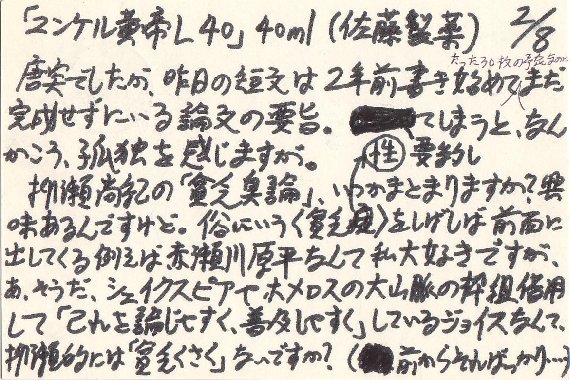 「ユンケル黄帝L40」40ml(佐藤製薬) 2/8
たった30枚の予定なのに
唐突でしたが、昨日の短文は2年前書き始めてまだ
完成せずにいる論文の要旨。 てしまうと、なん
かこう、孤独を感じますが。 要約し
柳瀬尚紀の「貧乏臭論」、いつかまとまりますか?興
味あるんですけど。俗にいう〈貧乏性〉をしばしば前面に
出してくる例えば赤瀬川原平なんて私大好きですが、
あ、そうだ、シェイクスピアやホメロスの大山脈の枠組借用
して「これを論じやすく、普及しやすく」しているジョイスなんて、
柳瀬的には「貧乏くさく」ないですか?( 前からそればっかり…)